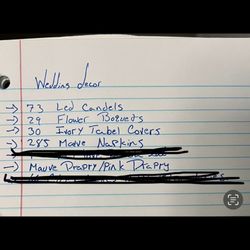 Wedding decor
→ 73 Led Candels
→ 29 Flower Boquets
→ 30 Ivory Tabel Covers
→ 285 Mauve Napkins
→ Mauve Drappy/Pink Drappy